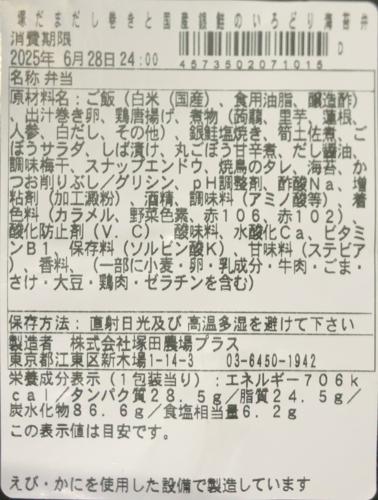 塚だまだし巻きと国産銀鮭のいろどり海苔弁
消費期限
2025年 6月28日24:00
D
4573502071015
名称 弁当
原材料名：ご飯（白米（国産）、食用油脂、醸造酢）
、出汁巻き卵、鶏唐揚げ、煮物（蒟蒻、里芋、蓮根、
人参、白だし、その他）、銀鮭塩焼き、筍土佐煮、ご
ぼうサラダ、しば漬け、丸ごぼう甘辛煮、だし醤油、
調味梅干、スナップエンドウ、焼鳥のタレ、海苔、か
つお削りぶし／グリシン、ｐＨ調整剤、酢酸Ｎａ、増
粘剤（加工澱粉）、酒精、調味料（アミノ酸等）、着
色料（カラメル、野菜色素、赤106、赤102）、
酸化防止剤（Ｖ．Ｃ）、酸味料、水酸化Ｃａ、ビタミ
ンＢ１、保存料（ソルビン酸Ｋ）、甘味料（ステビア
）、香料、（一部に小麦・卵・乳成分・牛肉・ごま・
さけ・大豆・鶏肉・ゼラチンを含む）
保存方法： 直射日光及び高温多湿を避けて下さい
製造者 株式会社塚田農場プラス
東京都江東区新木場1-14-3 03-6450-1942
栄養成分表示（１包装当り）：エネルギー７０６ｋ
ｃａｌ／タンパク質２８．５ｇ／脂質２４．５ｇ／
炭水化物８６．６ｇ／食塩相当量６．２ｇ
この表示値は目安です。
えび・かにを使用した設備で製造しています